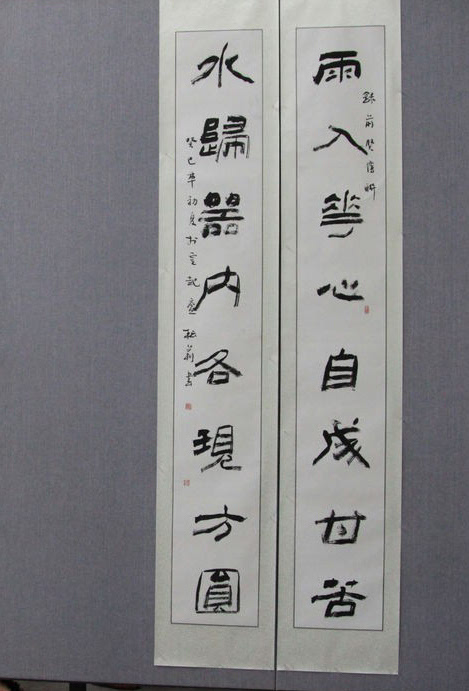 雨入花心自成甘苦
水歸器内各現方圓
癸巳年初夏於
書